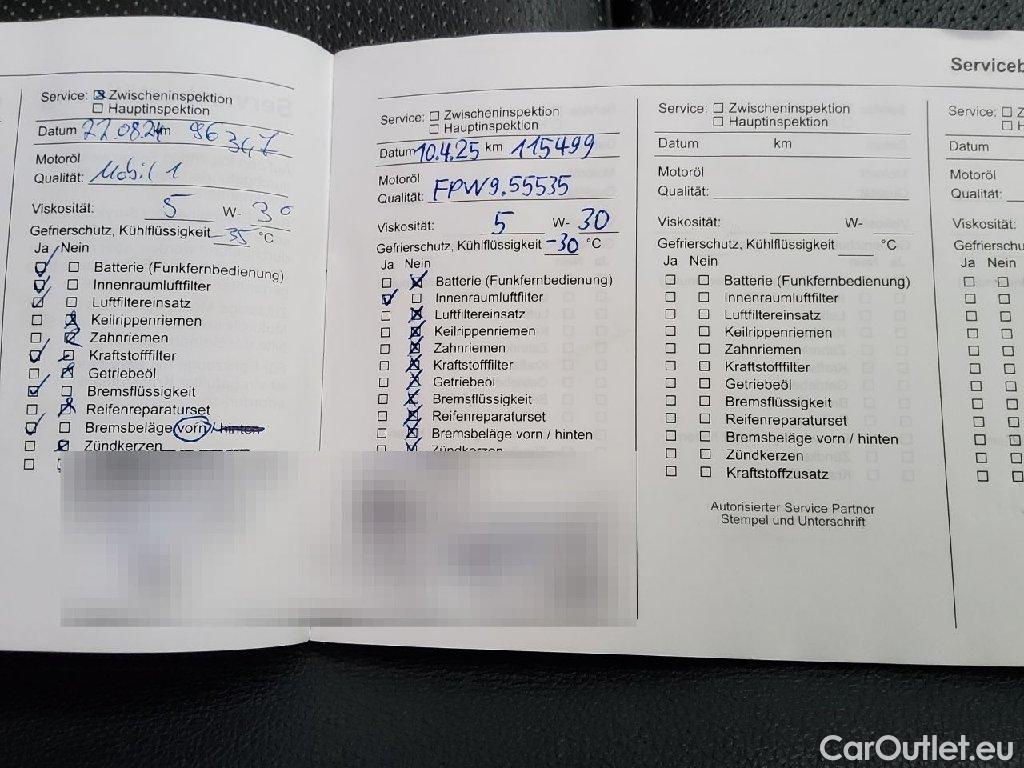 Serviceb
Service: ☒ Zwischeninspektion
☐ Hauptinspektion
Datum 22.08.24 km 96 347
Motoröl
Qualität: Mobil 1
Viskosität: 5 W- 30
Gefrierschutz, Kühlflüssigkeit -35 °C
Ja Nein
Batterie (Funkfernbedienung)
Innenraumluftfilter
Luftfiltereinsatz
Keilrippenriemen
Zahnriemen
Kraftstofffilter
Getriebeöl
Bremsflüssigkeit
Reifenreparaturset
Bremsbeläge vorn / hinten
Zündkerzen
Service: ☐ Zwischeninspektion
☐ Hauptinspektion
Datum 10.4.25 km 115499
Motoröl
Qualität: FPW9.55535
Viskosität: 5 W- 30
Gefrierschutz, Kühlflüssigkeit -30 °C
Ja Nein
Batterie (Funkfernbedienung)
Innenraumluftfilter
Luftfiltereinsatz
Keilrippenriemen
Zahnriemen
Kraftstofffilter
Getriebeöl
Bremsflüssigkeit
Reifenreparaturset
Bremsbeläge vorn / hinten
Zündkerzen
Service: ☐ Zwischeninspektion
☐ Hauptinspektion
Datum km
Motoröl
Qualität:
Viskosität: W-
Gefrierschutz, Kühlflüssigkeit °C
Ja Nein
Batterie (Funkfernbedienung)
Innenraumluftfilter
Luftfiltereinsatz
Keilrippenriemen
Zahnriemen
Kraftstofffilter
Getriebeöl
Bremsflüssigkeit
Reifenreparaturset
Bremsbeläge vorn / hinten
Zündkerzen
Kraftstoffzusatz
Autorisierter Service Partner
Stempel und Unterschrift
Service: ☐ Z
☐ H
Datum
Motoröl
Qualität:
Viskosität:
Gefrierschutz
Ja Nein
CarOutlet.eu